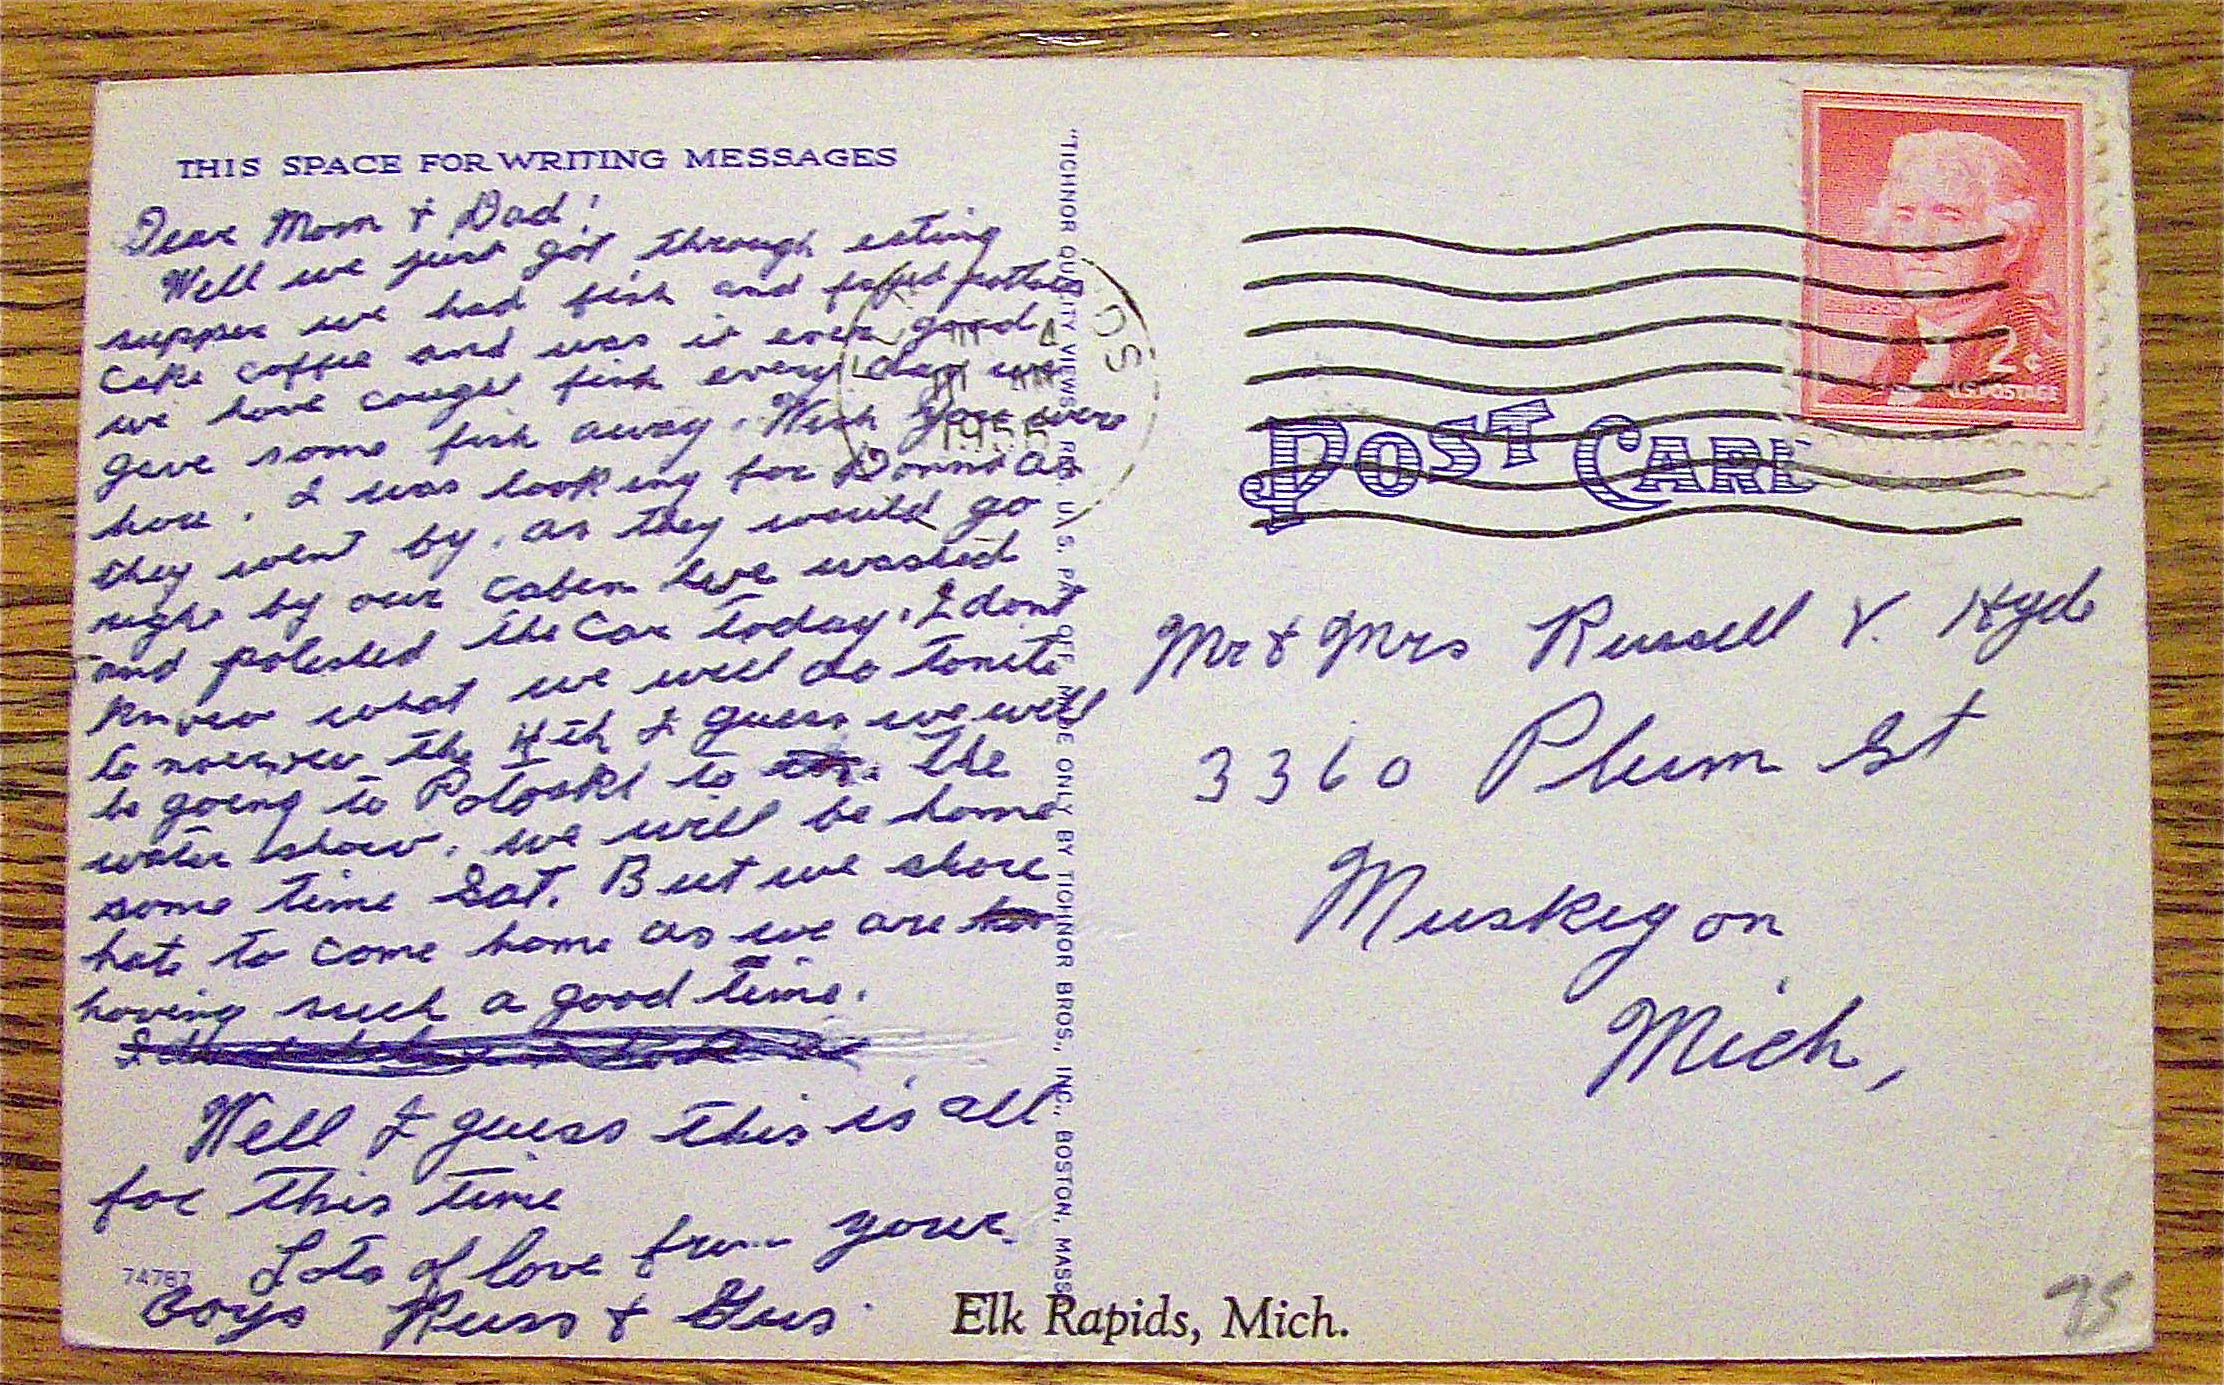 THIS SPACE FOR WRITING MESSAGES
Dear Mom & Dad!
Well we just got through eating
supper we had fish and potatoes
cake coffee and was it ever good
we have caught fish every day we
give some fish away. Wish you were
here. I was looking for Donna as
they went by. as they would go
right by our cabin we washed
and polished the car today. I dont
know what we will do tonite
tomorrow the 4th I guess we will
be going to Potoski to the
water show. we will be home
some time Sat. But we shore
hate to come home as we are
having such a good time.
Well I guess this is all
for this time
Lots of love from your
Boys Russ & Gus
74787
"TICHNOR QUALITY VIEWS" REG. U.S. PAT. OFF. MADE ONLY BY TICHNOR BROS., INC., BOSTON, MASS.
2¢
U.S. POSTAGE
POST CARD
Mr & Mrs Russell V. Hyde
3360 Plum St
Muskegon
Mich,
Elk Rapids, Mich.